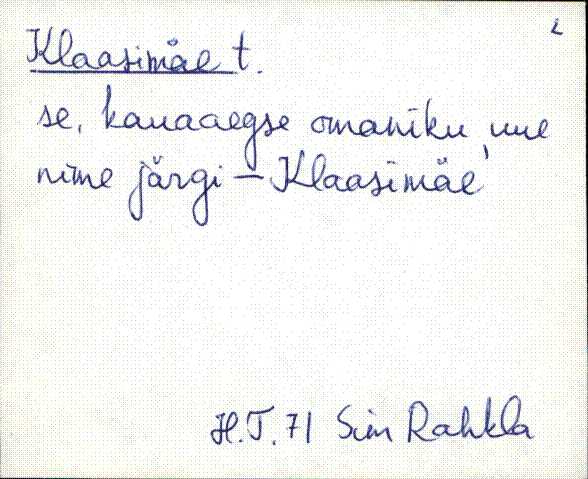 Klaasimäe t.
se, kauaaegse omaniku,
nime järgi – Klaasimäe
H.T. 71 Siim Rahkla